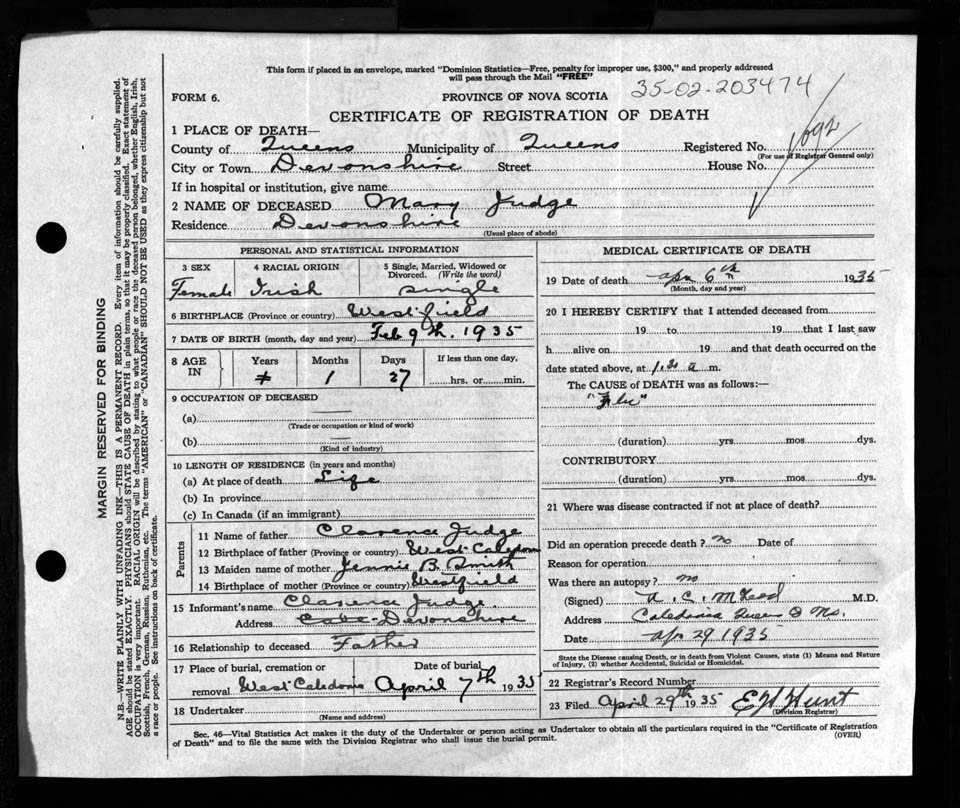 This form if placed in an envelope, marked "Dominion Statistics—Free, penalty for improper use, $300," and properly addressed
will pass through the Mail "FREE"
35-02-203474
FORM 6.
PROVINCE OF NOVA SCOTIA
CERTIFICATE OF REGISTRATION OF DEATH
1 PLACE OF DEATH—
County of Queens Municipality of Queens Registered No.
1092
(For use of Registrar General only)
City or Town Devonshire Street House No.
If in hospital or institution, give name
2 NAME OF DECEASED Mary Judge
Residence Devonshire
(Usual place of abode)
PERSONAL AND STATISTICAL INFORMATION
3 SEX 4 RACIAL ORIGIN 5 Single, Married, Widowed or Divorced. (Write the word)
Female Irish single
6 BIRTHPLACE (Province or country) Westfield
7 DATE OF BIRTH (month, day and year) Feb 9th. 1935
8 AGE IN Years Months Days If less than one day,
1 27 hrs. or min.
9 OCCUPATION OF DECEASED
(a)
(Trade or occupation or kind of work)
(b)
(Kind of industry)
10 LENGTH OF RESIDENCE (in years and months)
(a) At place of death Life
(b) In province
(c) In Canada (if an immigrant)
Parents
11 Name of father Clarence Judge
12 Birthplace of father (Province or country) West Caledonia
13 Maiden name of mother Jennie B. Smith
14 Birthplace of mother (Province or country) Westfield
15 Informant's name Clarence Judge.
Address Devonshire
16 Relationship to deceased Father
17 Place of burial, cremation or removal West Caledonia Date of burial April 7th 1935
18 Undertaker
(Name and address)
MEDICAL CERTIFICATE OF DEATH
19 Date of death Apr 6th 1935
(Month, day and year)
20 I HEREBY CERTIFY that I attended deceased from
19 to 19 that I last saw
h alive on 19 and that death occurred on the
date stated above, at 1.30 a m.
The CAUSE of DEATH was as follows:—
"Flu"
(duration) yrs. mos. dys.
CONTRIBUTORY
(duration) yrs. mos. dys.
21 Where was disease contracted if not at place of death?
Did an operation precede death? no Date of
Reason for operation
Was there an autopsy? no
(Signed) M.D.
Address Caledonia Queens Co Ns.
Date Apr 29 1935
State the Disease causing Death, or in death from Violent Causes, state (1) Means and Nature
of Injury, (2) whether Accidental, Suicidal or Homicidal.
22 Registrar's Record Number
23 Filed April 29th 1935 Hunt
(Division Registrar)
Sec. 46—Vital Statistics Act makes it the duty of the Undertaker or person acting as Undertaker to obtain all the particulars required in the "Certificate of Registration
of Death" and to file the same with the Division Registrar who shall issue the burial permit.
(OVER)
MARGIN RESERVED FOR BINDING
N.B.—WRITE PLAINLY WITH UNFADING INK—THIS IS A PERMANENT RECORD. Every item of information should be carefully supplied.
AGE should be stated EXACTLY. PHYSICIANS should STATE CAUSE OF DEATH in plain terms, so that it may be properly classified. Exact statement of
OCCUPATION is very important. RACIAL ORIGIN will be described by stating to what people or race the deceased person belonged, whether English, Irish,
Scottish, French, German, Russian, Ruthenian, etc. The terms "AMERICAN" or "CANADIAN" SHOULD NOT BE USED as they express citizenship but not
a race or people. See instructions on back of certificate.